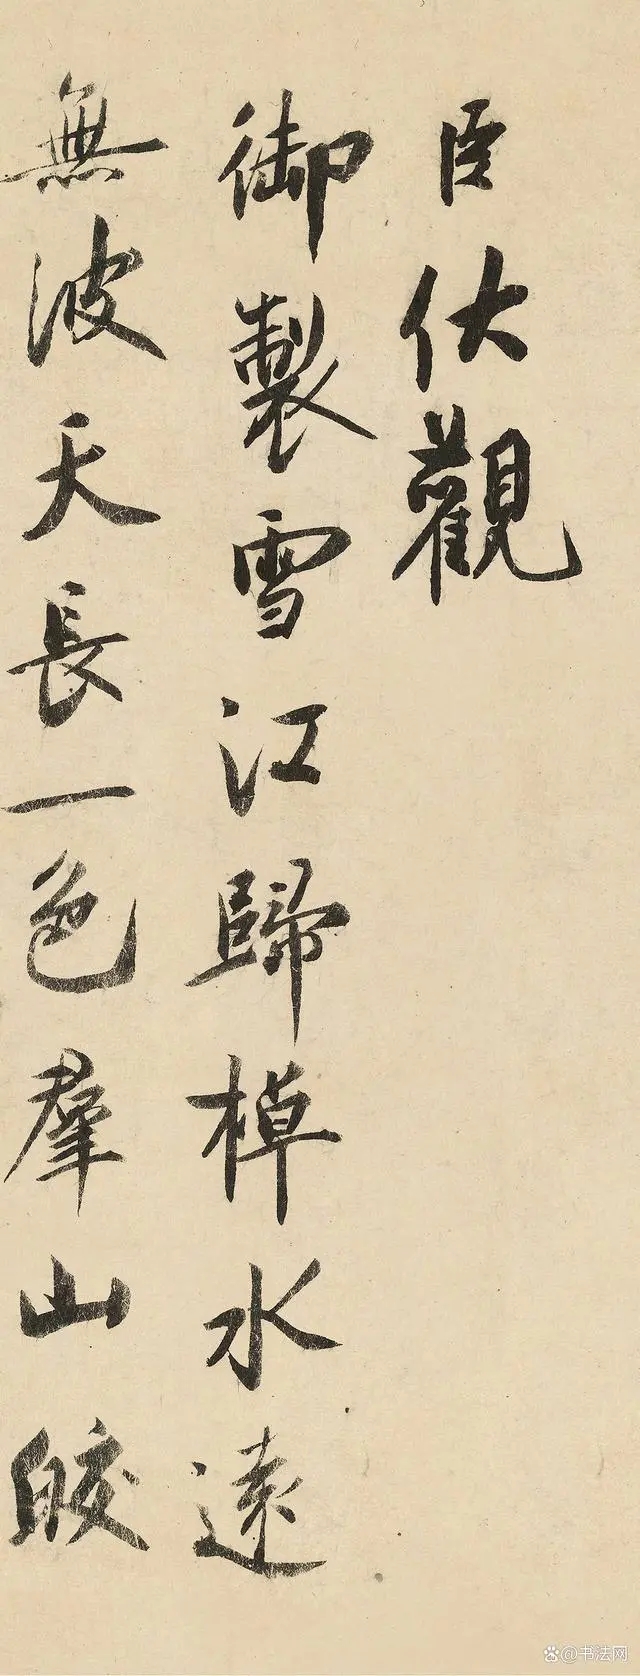 臣伏觀
御製雪江歸棹水遠
無波天長一色羣山皎
書法网